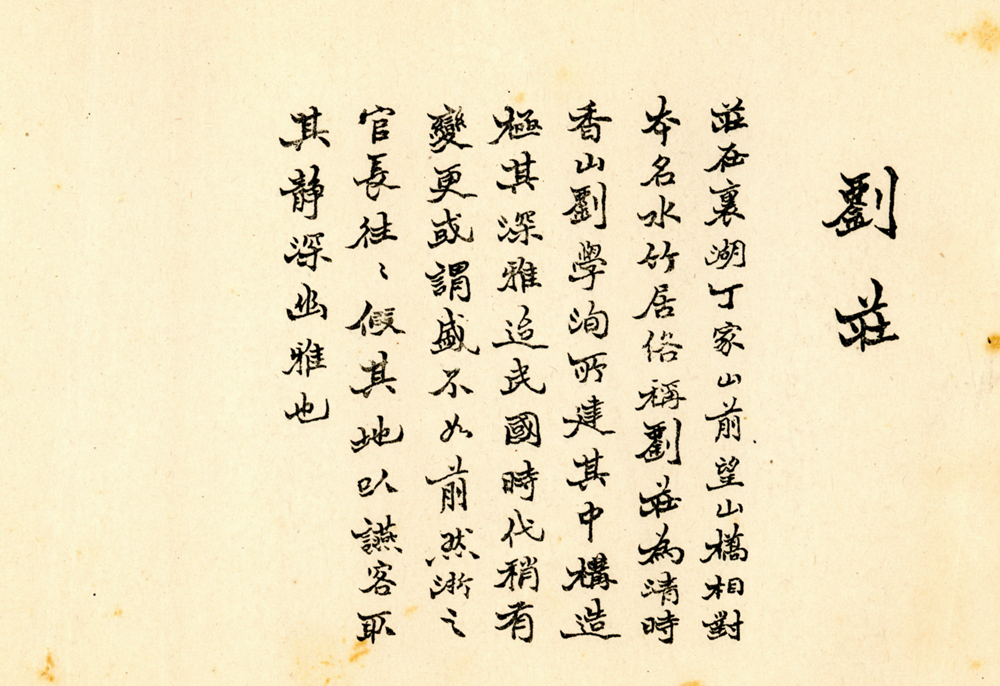 劉莊
莊在裏湖丁家山前望山橋相對
本名水竹居俗稱劉莊為清時
香山劉學洵所建其中構造
極其深雅迨民國時代稍有
變更或謂盛不如前然浙之
官長往〻假其地以讌客取
其靜深幽雅也